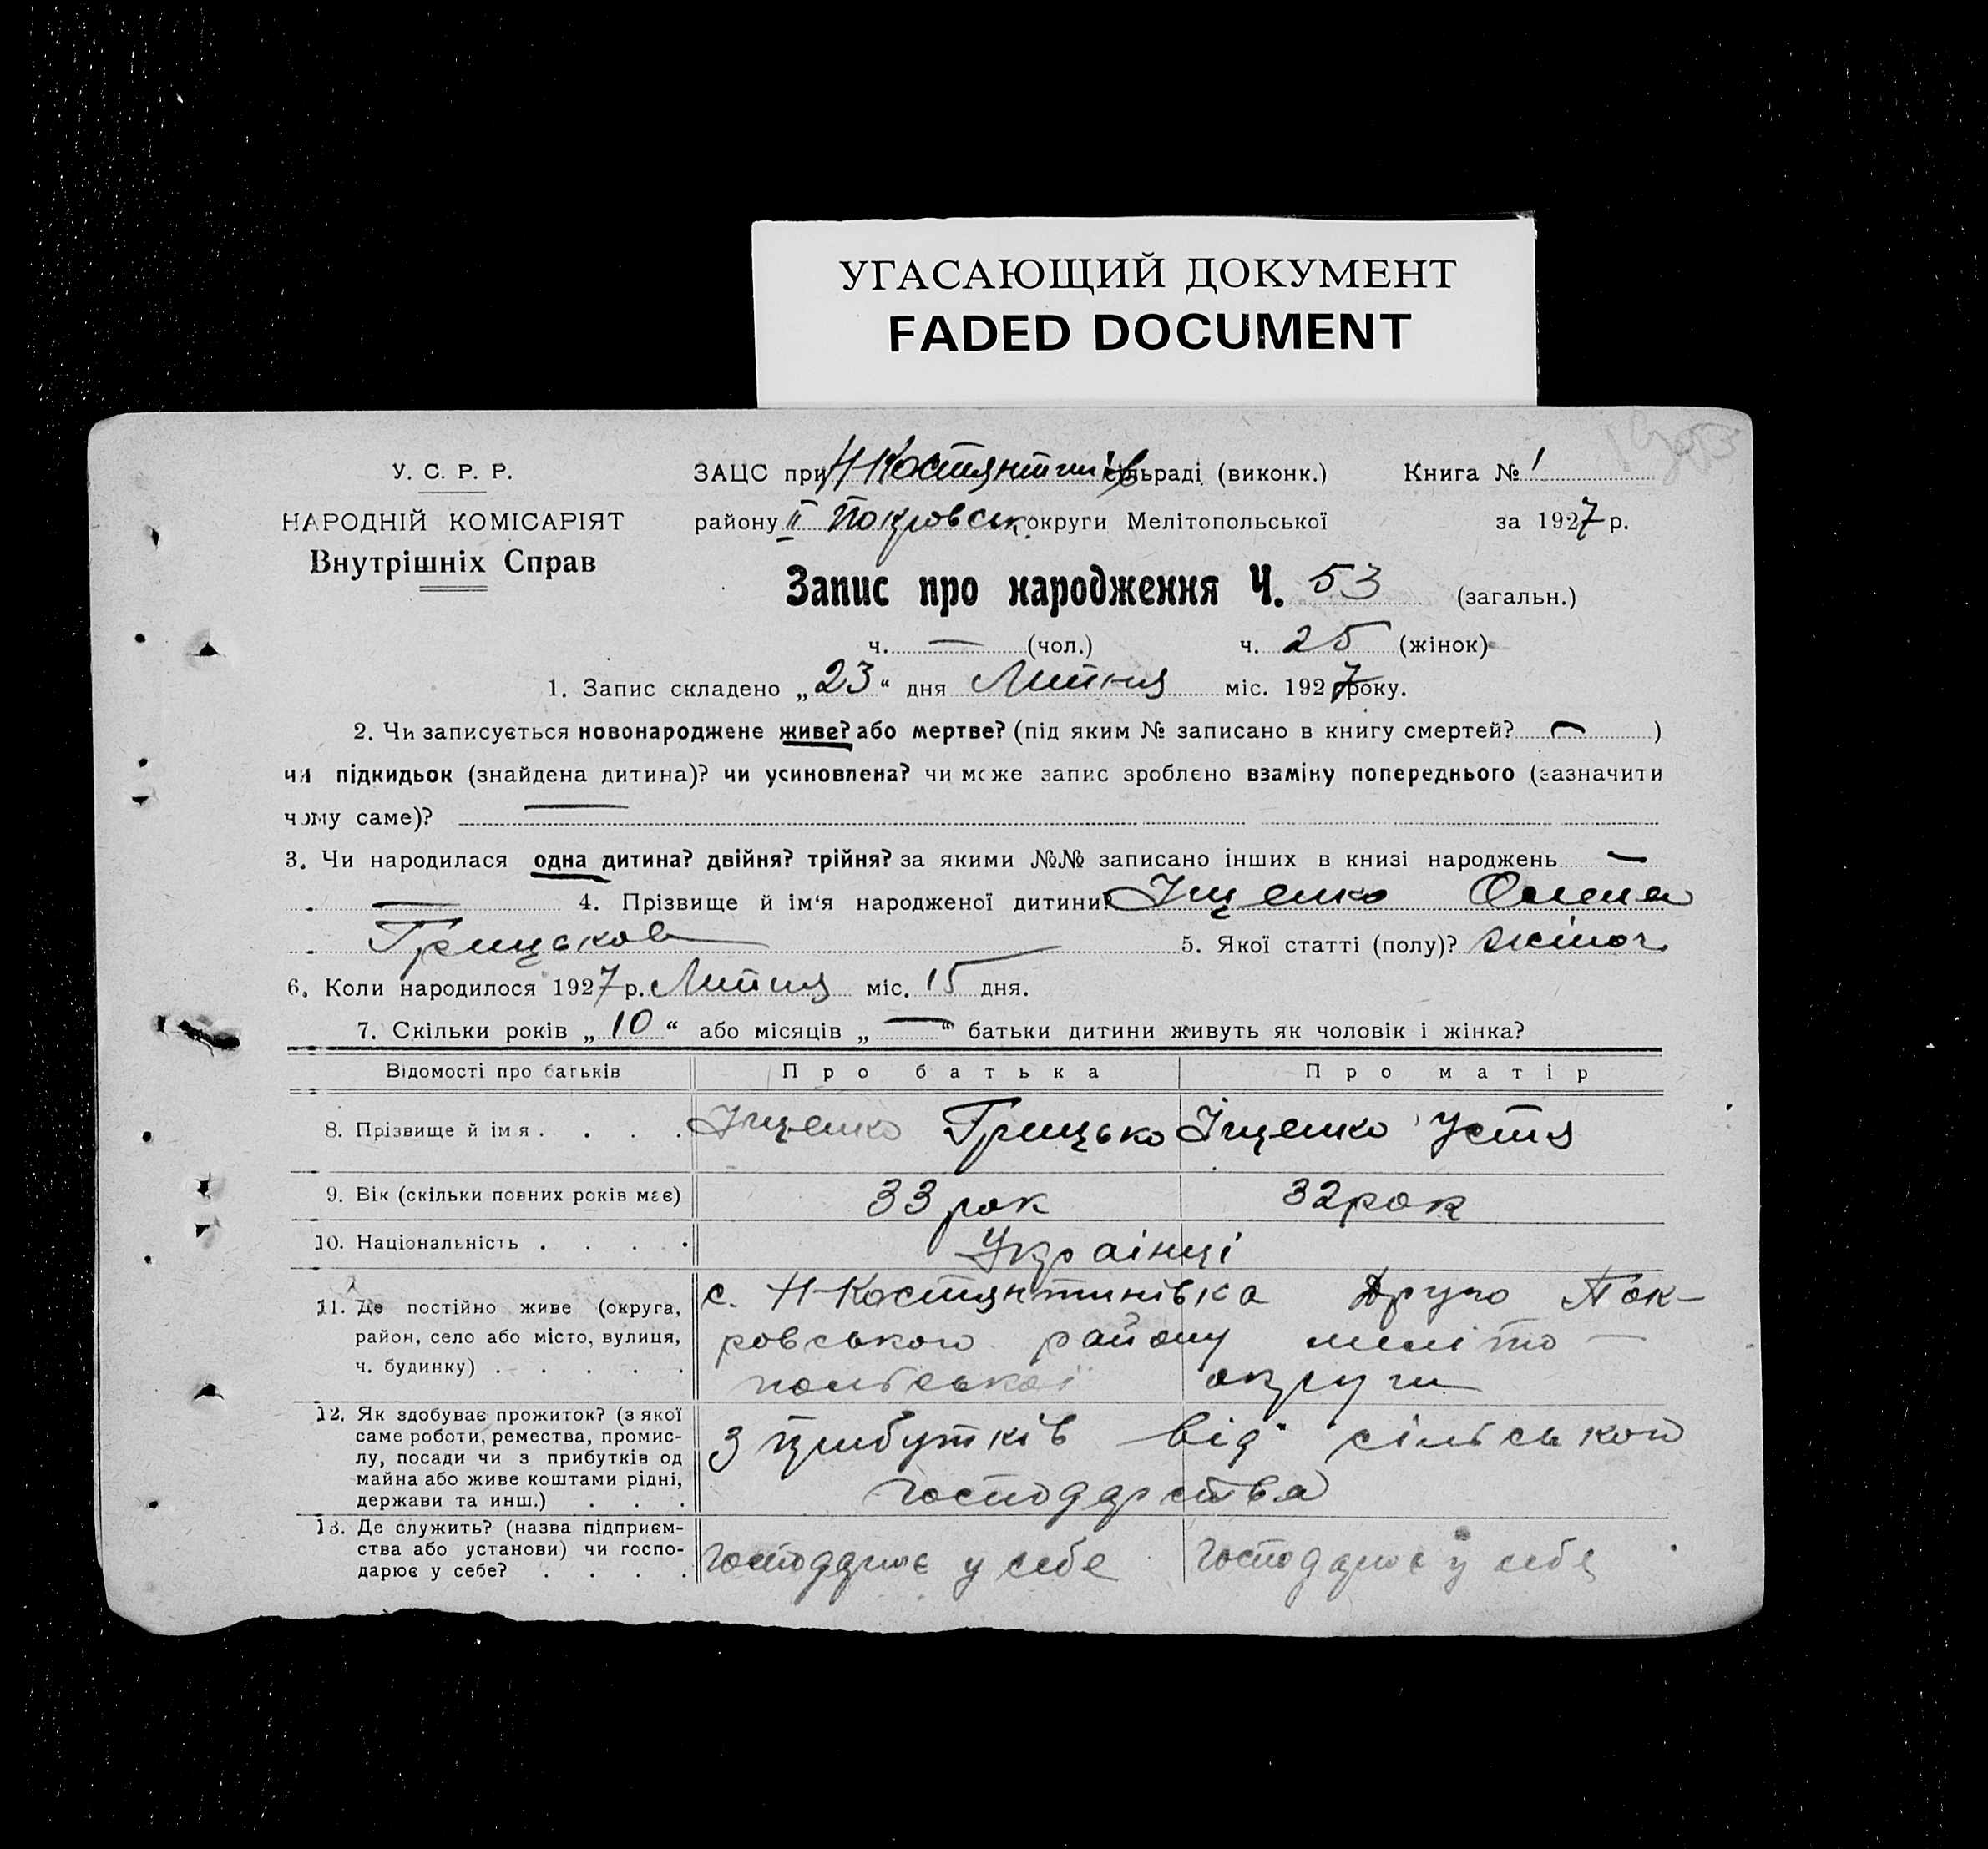 УГАСАЮЩИЙ ДОКУМЕНТ
FADED DOCUMENT
У. С. Р. Р.
НАРОДНІЙ КОМІСАРІЯТ
Внутрішніх Справ
ЗАЦС при Н-Костянтинів сільраді (виконк.) Книга № 1
району ІІ Покровськ. округи Мелітопольської за 1927 р.
Запис про народження Ч. 53 (загальн.)
ч. — (чол.) ч. 25 (жінок)
1. Запис складено „23“ дня Липня міс. 1927 року.
2. Чи записується новонароджене живе? або мертве? (під яким № записано в книгу смертей? — )
чи підкидьок (знайдена дитина)? чи усиновлена? чи може запис зроблено взаміну попереднього (зазначити
чому саме)? —
3. Чи народилася одна дитина? двійня? трійня? за якими №№ записано інших в книзі народжень —
— 4. Прізвище й ім'я народженої дитини? Іщенко Олена
Грицькова 5. Якої статті (полу)? жіноч.
6. Коли народилося 1927 р. Липня міс. 15 дня.
7. Скільки років „10“ або місяців „—“ батьки дитини живуть як чоловік і жінка?
Відомості про батьків Про батька Про матір
8. Прізвище й імя . . . . Іщенко Грицько Іщенко Устя
9. Вік (скільки повних років має) 33 рок 32 рок
10. Національність . . . . Українці
11. Де постійно живе (округа, район, село або місто, вулиця, ч. будинку) . . . . .
с. Н-Костянтинівка Друго Пок-
ровського району меліто-
польської округи
12. Як здобуває прожиток? (з якої саме роботи, ремества, промис-
лу, посади чи з прибутків од
майна або живе коштами рідні,
держави та инш.) . . .
З прибутків від сільського
господарства
13. Де служить? (назва підприєм-
ства або установи) чи госпо-
дарює у себе? . . . .
Господарює у себе Господарює у себе